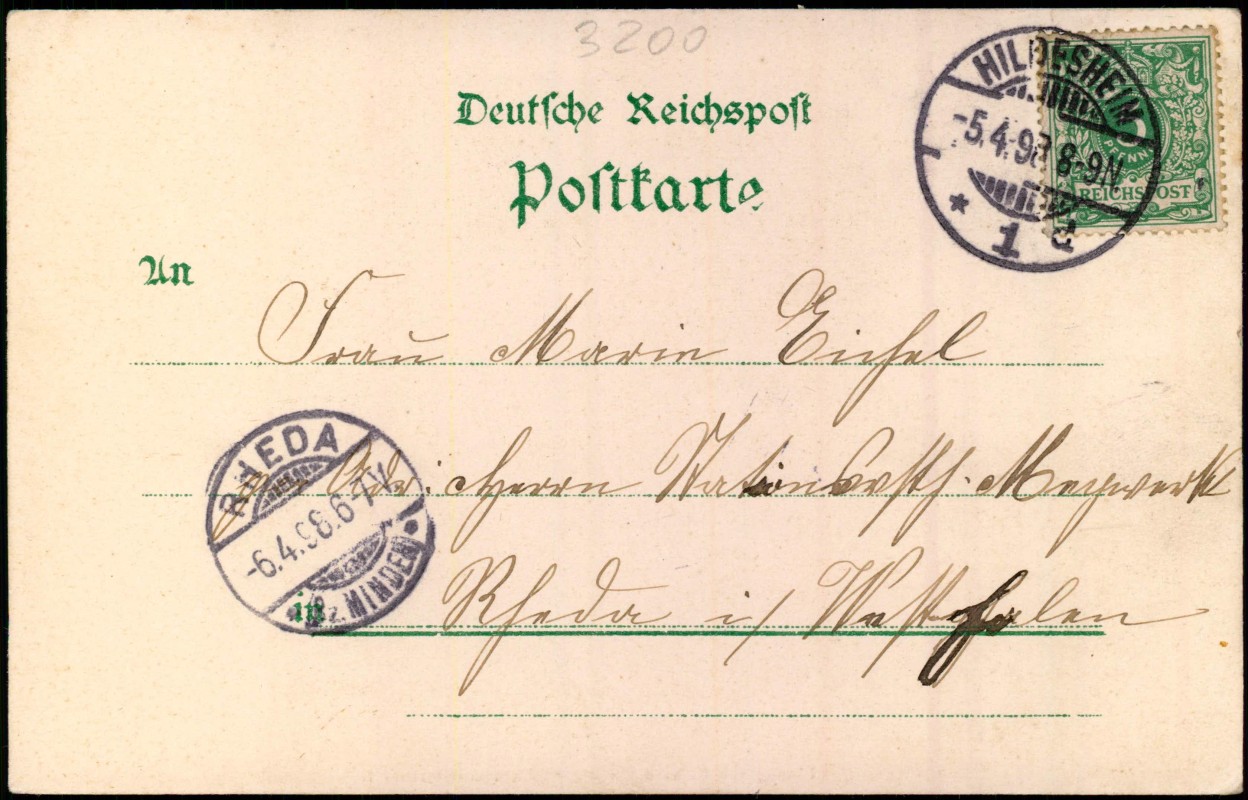 3200
Deutsche Reichspost
Postkarte
HILDESHEIM
-5.4.98 8-9N.
* 1 d
PFENNIG
REICHSPOST
An
Frau Marie Eichel
RHEDA
-6.4.98.6-7V.
Bz. MINDEN
Herrn
in Rheda i/ Westfalen